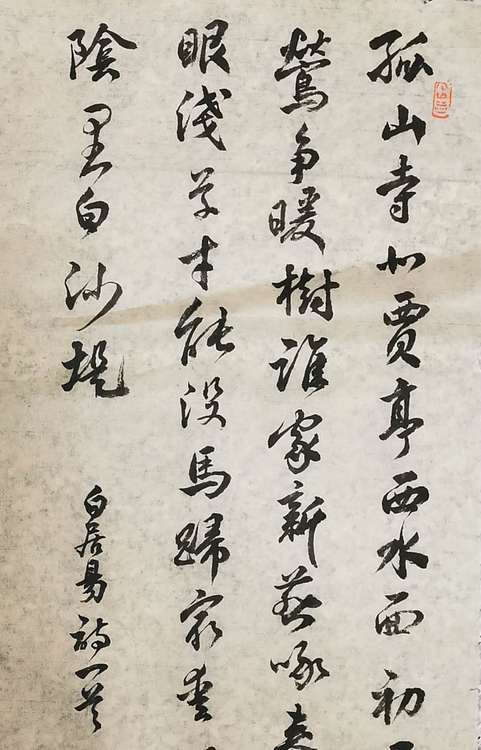 孤山寺北賈亭西水面初
鶯争暖樹誰家新燕啄春
眼淺草才能沒馬蹄冣愛
陰里白沙堤
白居易詩一首